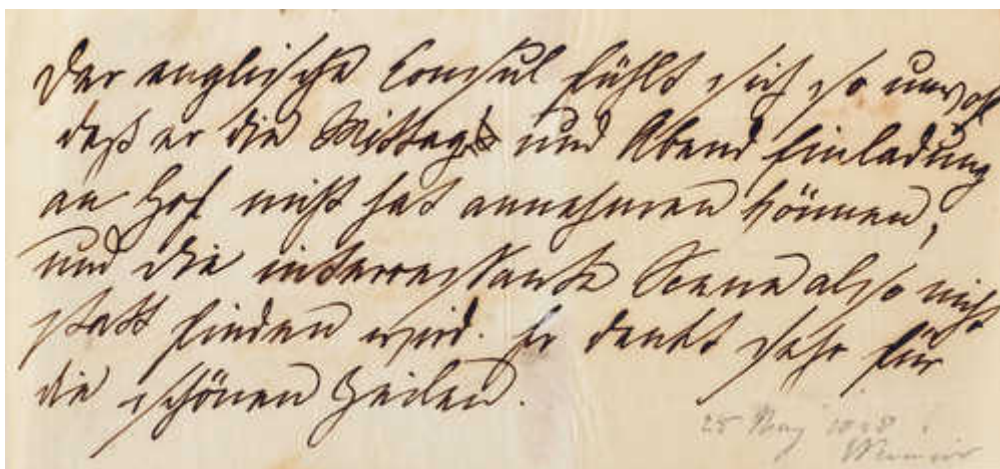 Der englische Consul fühlt sich so unwohl
daß er die Mittag und Abend Einladung
an Hof nicht hat annehmen können,
und die interressante Scene also nicht
statt finden wird. Er dankt sehr für
die schönen Zeilen.
25 May